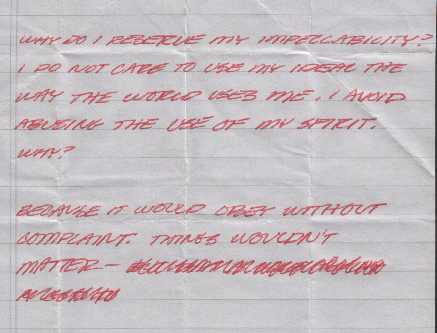 WHY DO I RESERVE MY IMPECCABILITY?
I DO NOT CARE TO USE MY IDEAL THE
WAY THE WORLD USES ME. I AVOID
ABUSING THE USE OF MY SPIRIT.
WHY?
BECAUSE IT WOULD OBEY WITHOUT
COMPLAINT. THINGS WOULDN'T
MATTER —